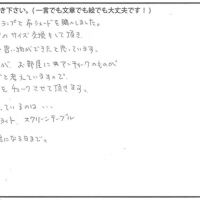 き下さい。(一言でも文章でも絵でも大丈夫です！)
ランプと布シェードを購入しました。
のサイズ交換をして頂き、
買い物ができたと思っています。
が、お部屋に
アンティークのものが
と考えていますので、
をチェックさせて頂きます。
ているのは…
ライト、スクリーンテーブル
になる日まで。